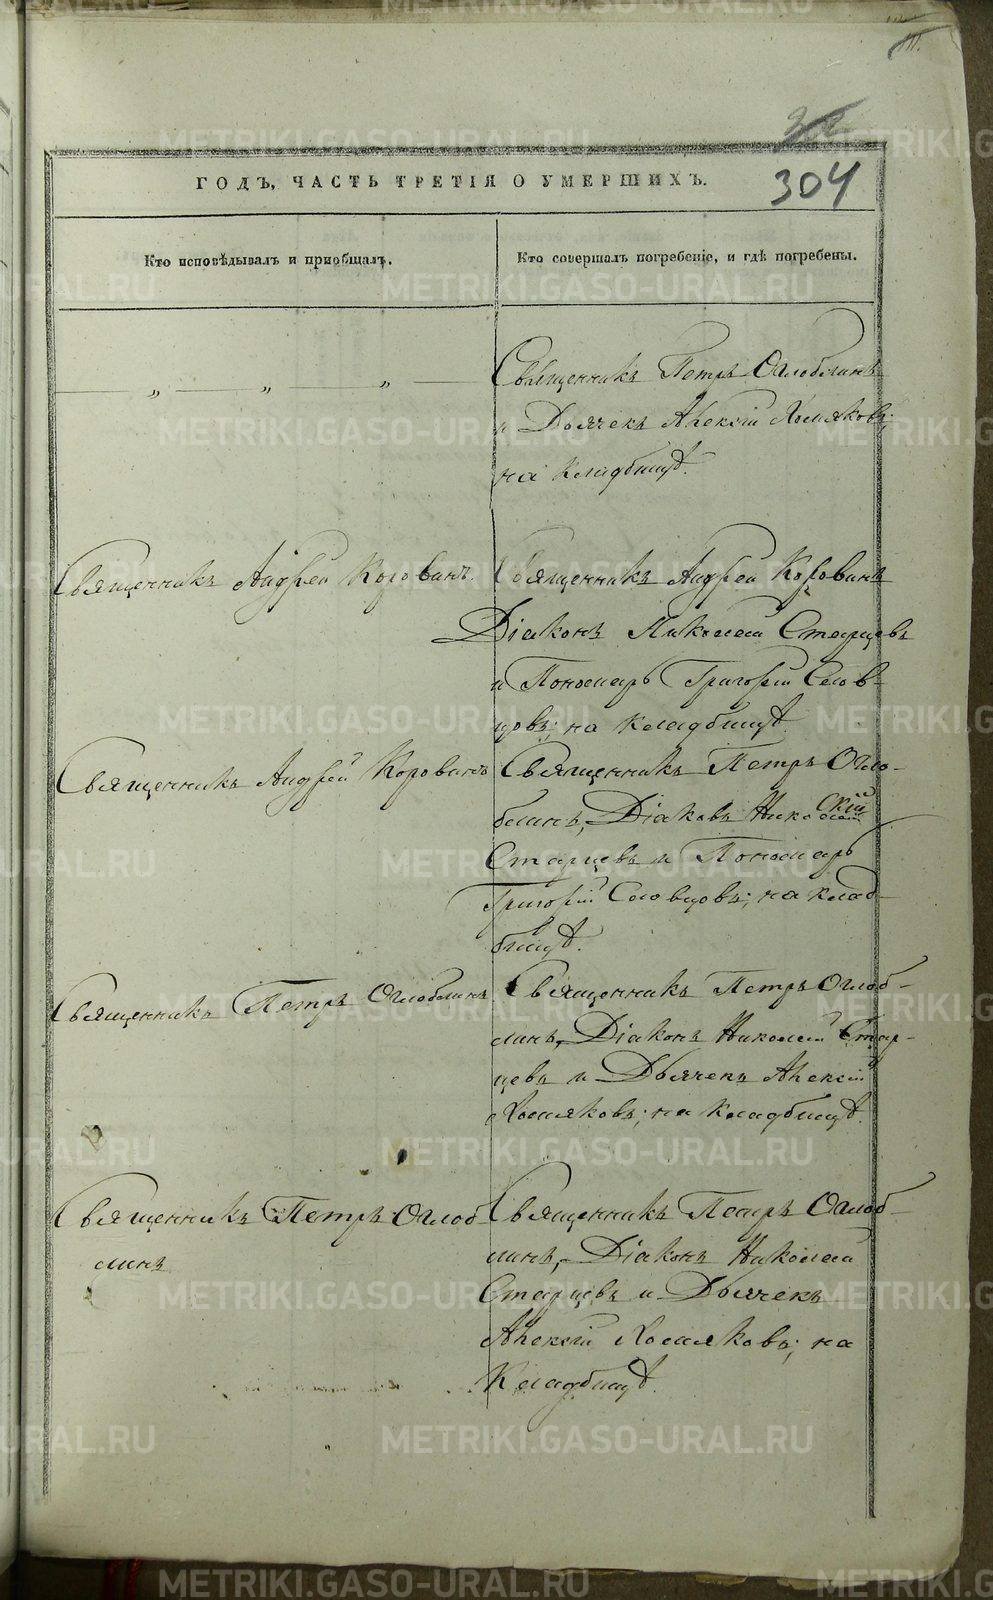 304
ГОДЪ, ЧАСТЬ ТРЕТІЯ О УМЕРШИХЪ.
Кто исповѣдывалъ и пріобщалъ.
Кто совершалъ погребеніе, и гдѣ погребены.
— „ — „ — „ —
Священникъ Петръ Оглоблинъ
и Дьячекъ Алексій Хомяковъ;
на кладбищѣ.
Священникъ Андрей Корованъ.
Священникъ Андрей Корованъ
Діаконъ Николай Старцевъ
и Пономарь Григорій Слов-
цовъ; на кладбищѣ.
Священникъ Андрей Корованъ
Священникъ Петръ Огло-
блинъ, Діаконъ Николай
Старцевъ и Пономарь
Григорій Словцовъ; на клад-
бищѣ.
Священникъ Петръ Оглоблинъ
Священникъ Петръ Оглоб-
линъ, Діаконъ Николай Стар-
цевъ и Дьячекъ Алексій
Хомяковъ; на кладбищѣ.
Священникъ Петръ Оглоб-
линъ
Священникъ Петръ Оглоб-
линъ, Діаконъ Николай
Старцевъ и Дьячекъ
Алексій Хомяковъ; на
Кладбищѣ.
METRIKI.GASO-URAL.RU